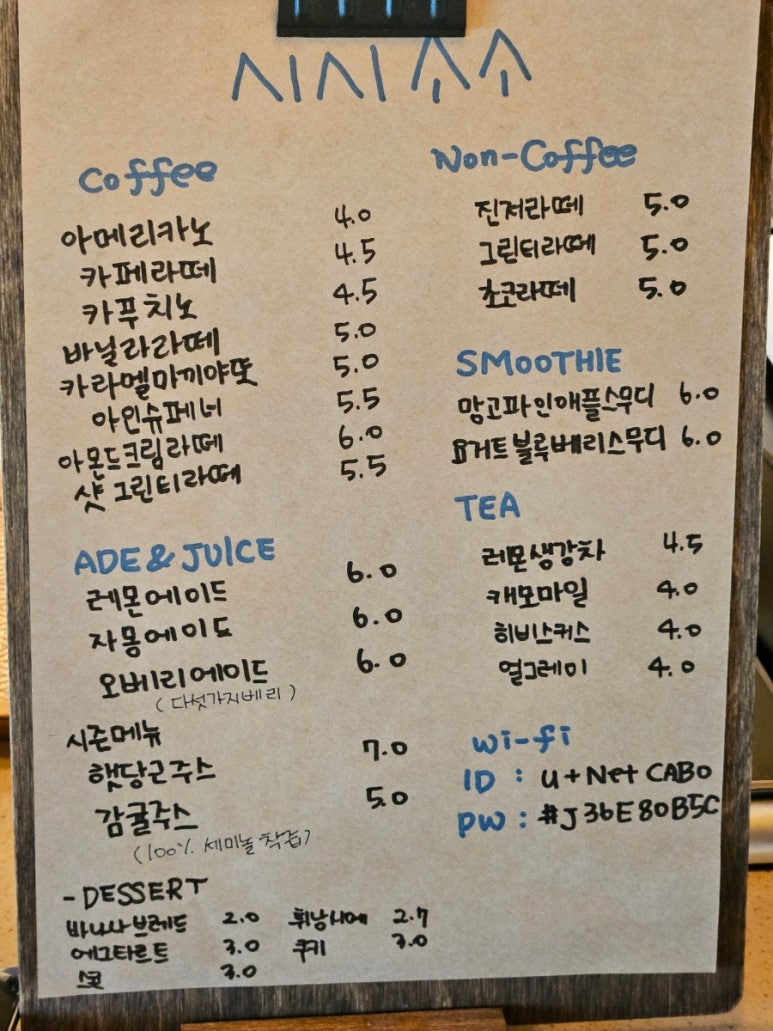 시시소소
Coffee
아메리카노 4.0
카페라떼 4.5
카푸치노 4.5
바닐라라떼 5.0
카라멜마끼야또 5.0
아인슈페너 5.5
아몬드크림라떼 6.0
샷그린티라떼 5.5
ADE & JUICE
레몬에이드 6.0
자몽에이드 6.0
오베리에이드 6.0
(다섯가지베리)
시즌메뉴
햇당근주스 7.0
감귤주스 5.0
(100% 세미놀 착즙)
- DESSERT
바나나브레드 2.0 휘낭시에 2.7
에그타르트 3.0 쿠키 3.0
스콘 3.0
Non-Coffee
진저라떼 5.0
그린티라떼 5.0
초코라떼 5.0
SMOOTHIE
망고파인애플스무디 6.0
요거트블루베리스무디 6.0
TEA
레몬생강차 4.5
캐모마일 4.0
히비스커스 4.0
얼그레이 4.0
Wi-fi
ID : U+Net CAB0
PW : #J36E80B5C